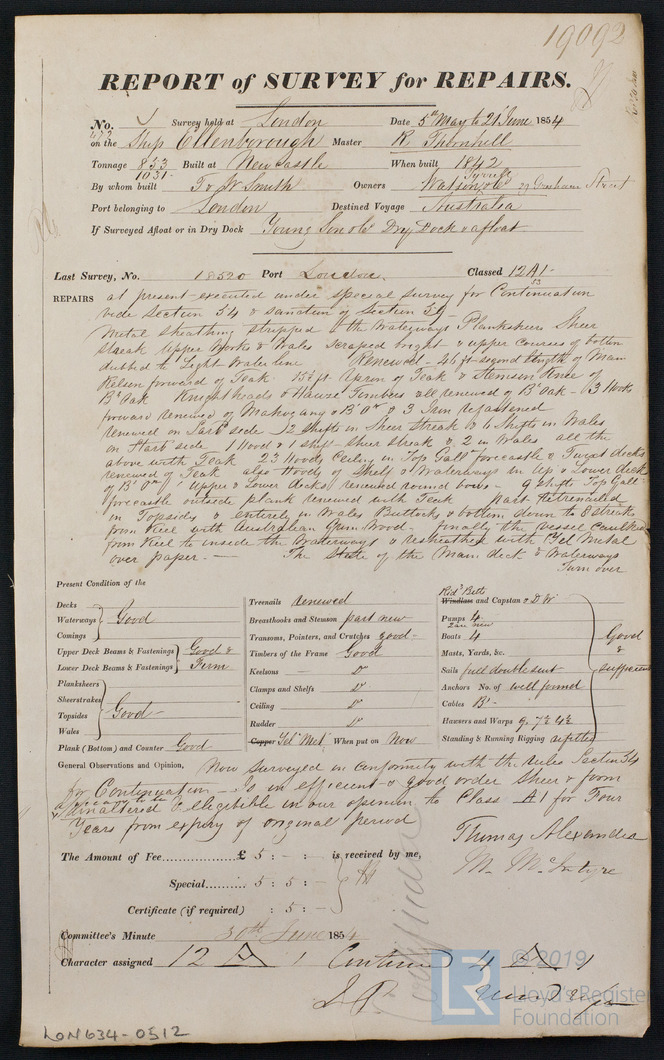 19092
REPORT of SURVEY for REPAIRS.
No. Survey held at London Date 5th May to 21st June 1854
on the Ship Ellenborough Master R. Thornhill
Tonnage 833 Built at Newcastle When built 1842
1031
By whom built T & W Smith Owners Watson Street
Port belonging to London Destined Voyage Australia
If Surveyed Afloat or in Dry Dock Young Son & Co Dry Dock & afloat
Last Survey, No. 18520 Port London. Classed 12A1-
53
REPAIRS at present executed under special survey for Continuation
vide Section 54 & sanction of Section 59
Metal sheathing stripped & the Waterways Plankshears Sheer
Streak Upper Works & Wales scraped bright & upper courses of bottom
dubbed to Light Water line Renewed - 46 ft second length of Main
Kelson forward of Teak. Apron of Teak & Stemson Knee of
Bh Oak Knightheads & Hawse Timbers all renewed of Bh Oak - 3 Hooks
forward renewed of Mahogany & Bh Ok & 3 Iron refastened
renewed on Larbd side 2 shifts in Sheer Streak & 6 Shifts in Wales
on Starbd side 1 Hood & 1 shift sheer streak & 2 in Wales all the
above with Teak 23 Hoods Ceiling in Top Gallt forecastle & Tween decks
renewed of Teak also Hoods of Shelf & Waterways in Up & Lower deck
of Bh Ok Upper & Lower decks renewed round bows - 9 shifts Top Gallt
forecastle outside plank renewed with Teak part Retrenailed
in Topsides & entirely in Wales Buttocks & bottom down to 8 streak
from Keel with Australian Gum Wood - finally the vessel caulked
from Keel to inside the Waterways & resheathed with Yel Metal
over paper. - The State of the Main deck & Waterways
Turn over
Present Condition of the
Decks
Waterways Good
Comings
Upper Deck Beams & Fastenings Good &
Lower Deck Beams & Fastenings Firm
Planksheers
Sheerstrakes
Topsides Good
Wales
Plank (Bottom) and Counter Good
Treenails renewed
Breasthooks and Stemson part new
Transoms, Pointers, and Crutches good
Timbers of the Frame Good
Keelsons Do
Clamps and Shelfs Do
Ceiling Do
Rudder Do
Copper Yel Met When put on Now
Ridg Bitts
Windlass and Capstan & D W
Pumps 4
2 are new
Boats 4
Masts, Yards, &c. Good
Sails full double suit &
Anchors No. of well found sufficient
Cables
Hawsers and Warps
Standing & Running Rigging refitted
General Observations and Opinion, Now surveyed in conformity with the rules Section 54
for Continuation - is in efficient & good order Sheer & form
unaltered & eligible in our opinion to Class A1 for Four
Years from expiry of original period
Thomas Alexander
M. McIntyre
The Amount of Fee £ 5 : - : - is received by me,
Special 5 : 5 : -
Certificate (if required) : 5 : -
Committee's Minute 30th June 1854
Character assigned 12 A 1 Continued 4 A 1
© 2019
LR
Lloyd's Register
Foundation
LON634-0512